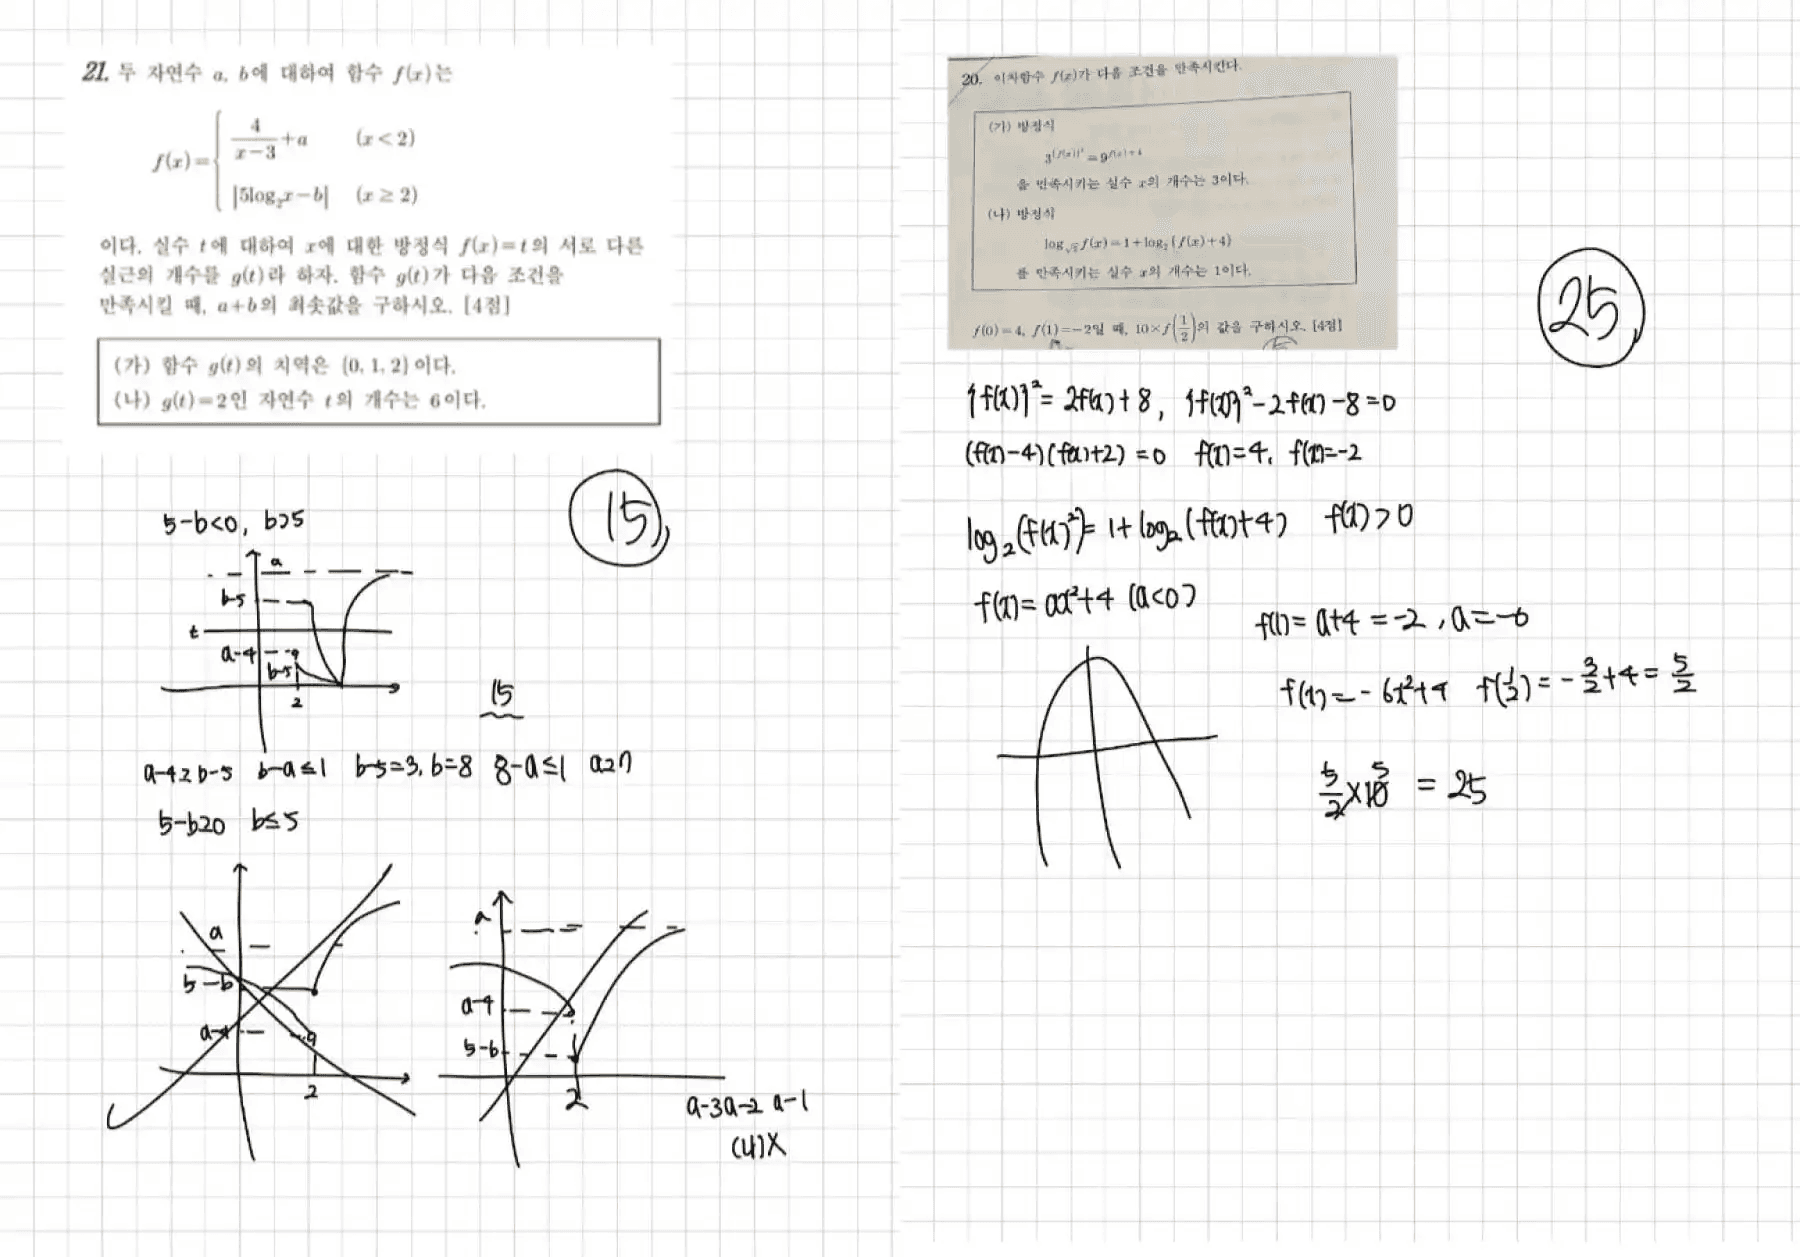 21. 두 자연수 a, b에 대하여 함수 f(x)는
f(x)={ 4/(x-3)+a (x<2)
|5log₂x-b| (x≥2)
이다. 실수 t에 대하여 x에 대한 방정식 f(x)=t의 서로 다른
실근의 개수를 g(t)라 하자. 함수 g(t)가 다음 조건을
만족시킬 때, a+b의 최솟값을 구하시오. [4점]
(가) 함수 g(t)의 치역은 {0, 1, 2}이다.
(나) g(t)=2인 자연수 t의 개수는 6이다.
15,
5-b<0, b>5
a
b-5
t
a-4
b-5
2
15
a-4≥b-5 b-a≤1 b-5=3, b=8 8-a≤1 a≥7
5-b≥0 b≤5
a
5-b
a-4
2
a
a-4
5-b
2
a-3 a-2 a-1
(나)X
20. 이차함수 f(x)가 다음 조건을 만족시킨다.
(가) 방정식
3^{{f(x)}²}=9^{f(x)+4}
을 만족시키는 실수 x의 개수는 3이다.
(나) 방정식
log_{√2} f(x)=1+log₂{f(x)+4}
를 만족시키는 실수 x의 개수는 1이다.
f(0)=4, f(1)=-2일 때, 10×f(1/2)의 값을 구하시오. [4점]
25,
{f(x)}²=2f(x)+8, {f(x)}²-2f(x)-8=0
(f(x)-4)(f(x)+2)=0 f(x)=4, f(x)=-2
log₂(f(x)²)=1+log₂(f(x)+4) f(x)>0
f(x)=ax²+4 (a<0)
f(1)=a+4=-2, a=-6
f(x)=-6x²+4 f(1/2)=-3/2+4=5/2
5/2×10 5 =25